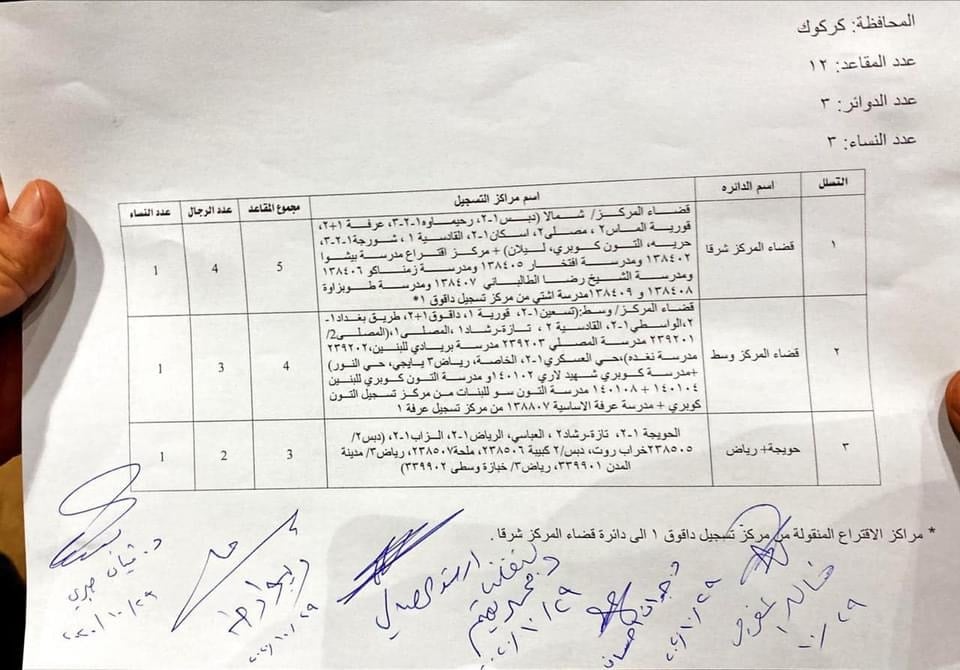 المحافظة: كركوك
عدد المقاعد: ١٢
عدد الدوائر: ٣
عدد النساء: ٣
التسلل اسم الدائره اسم مراكز التسجيل مجموع المقاعد عدد الرجال عدد النساء
١ قضاء المركز شرقا 5 4 1
قضاء المركز/ شمالا (دبس١-٢، رحيماوه١-٢-٣، عرفة ١+٢،
قورية الماس٢ ، مصلى٢، اسكان١-٢، القادسية ١ ، شورجة١-٢-٣،
حريه، التون كوبري، ليلان) + مركز اقتراع مدرسة بيشوا
١٣٨٤٠٢ ومدرسة افتخار ١٣٨٤٠٥ ومدرسة زمناكو ١٣٨٤٠٦
ومدرسة الشيخ رضا الطالباني ١٣٨٤٠٧ ومدرسة طوبزاوة
١٣٨٤٠٨ و ١٣٨٤٠٩مدرسة اشتي من مركز تسجيل داقوق ١*
٢ قضاء المركز وسط 4 3 1
قضاء المركز/ وسط:(تسعين١-٢، قورية ١، داقوق١+٢، طريق بغداد١-
٢،الواسطي١-٢، القادسية ٢ ، تازة-رشاد١ ،المصلى١،(المصلى2/
٢٣٩٢٠١ مدرسة المصلي ٢٣٩٢٠٣ مدرسة بريادي للبنين،٢٣٩٢٠٢
مدرسة نغده)،حي العسكري١-٢، الخاصة، رياض٣ يايجي، حي النور)
+مدرسة كوبري شهيد لاري ١٤٠١٠٢و مدرسة التون كوبري للبنين
١٤٠١٠٤ + ١٤٠١٠٨ مدرسة التون سو للبنات من مركز تسجيل التون
كوبري + مدرسة عرفة الاساسية ١٣٨٨٠٧ من مركز تسجيل عرفة ١
٣ حويجة+ رياض 3 2 1
الحويجة ١-٢، تازة-رشاد٢ ، العباسي، الرياض١-٢، الزاب١-٢، (دبس٢/
٢٣٨٥٠٥خراب روت، دبس/٢ كبيبة ٢٣٨٥٠٦، ملحة٢٣٨٥٠٧، رياض٣/ مدينة
المدن ٣٣٩٩٠١، رياض٣/ خبازة وسطى ٣٣٩٩٠٢)
* مراكز الاقتراع المنقولة من مركز تسجيل داقوق ١ الى دائرة قضاء المركز شرقا .
خالد المفرجي
د. جوان احسان
ارشد الصالحي